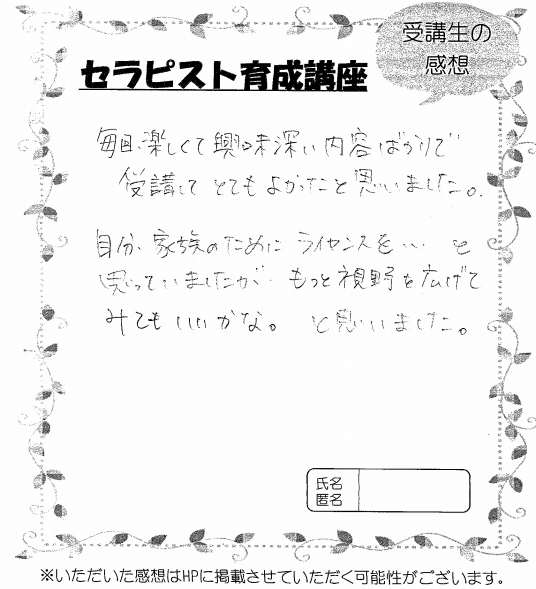 受講生の
感想
セラピスト育成講座
毎回、楽しくて興味深い内容ばかりで
受講してとてもよかったと思いました。
自分、家族のためにライセンスを‥ と
思っていましたが もっと視野を広げて
みてもいいかな。 と思いました。
氏名
匿名
※いただいた感想はHPに掲載させていただく可能性がございます。